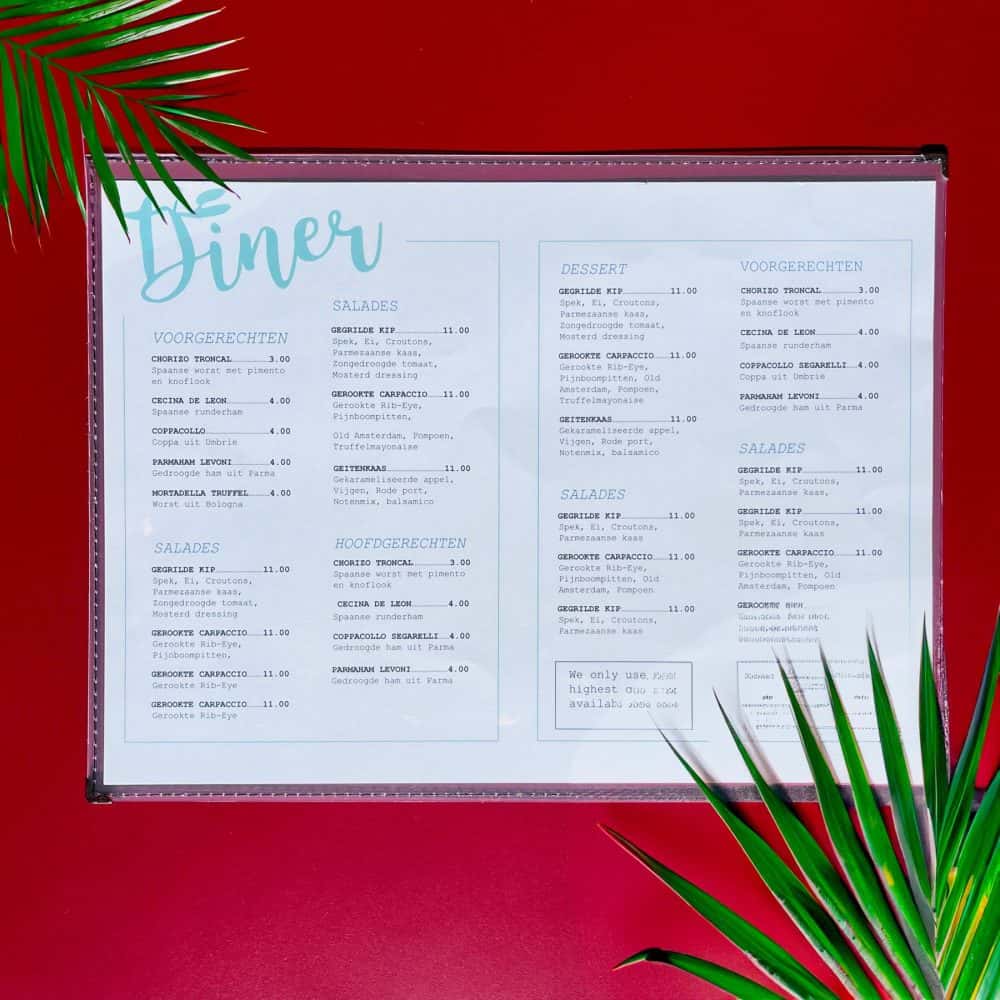 Diner
VOORGERECHTEN
CHORIZO TRONCAL 3.00
Spaanse worst met pimento
en knoflook
CECINA DE LEON 4.00
Spaanse runderham
COPPACOLLO 4.00
Coppa uit Umbrie
PARMAHAM LEVONI 4.00
Gedroogde ham uit Parma
MORTADELLA TRUFFEL 4.00
Worst uit Bologna
SALADES
GEGRILDE KIP 11.00
Spek, Ei, Croutons,
Parmezaanse kaas,
Zongedroogde tomaat,
Mosterd dressing
GEROOKTE CARPACCIO 11.00
Gerookte Rib-Eye,
Pijnboompitten,
GEROOKTE CARPACCIO 11.00
Gerookte Rib-Eye
GEROOKTE CARPACCIO 11.00
Gerookte Rib-Eye
SALADES
GEGRILDE KIP 11.00
Spek, Ei, Croutons,
Parmezaanse kaas,
Zongedroogde tomaat,
Mosterd dressing
GEROOKTE CARPACCIO 11.00
Gerookte Rib-Eye,
Pijnboompitten,
Old Amsterdam, Pompoen,
Truffelmayonaise
GEITENKAAS 11.00
Gekarameliseerde appel,
Vijgen, Rode port,
Notenmix, balsamico
HOOFDGERECHTEN
CHORIZO TRONCAL 3.00
Spaanse worst met pimento
en knoflook
CECINA DE LEON 4.00
Spaanse runderham
COPPACOLLO SEGARELLI 4.00
Gedroogde ham uit Parma
PARMAHAM LEVONI 4.00
Gedroogde ham uit Parma
DESSERT
GEGRILDE KIP 11.00
Spek, Ei, Croutons,
Parmezaanse kaas,
Zongedroogde tomaat,
Mosterd dressing
GEROOKTE CARPACCIO 11.00
Gerookte Rib-Eye,
Pijnboompitten, Old
Amsterdam, Pompoen,
Truffelmayonaise
GEITENKAAS 11.00
Gekarameliseerde appel,
Vijgen, Rode port,
Notenmix, balsamico
SALADES
GEGRILDE KIP 11.00
Spek, Ei, Croutons,
Parmezaanse kaas
GEROOKTE CARPACCIO 11.00
Gerookte Rib-Eye,
Pijnboompitten, Old
Amsterdam, Pompoen
GEGRILDE KIP 11.00
Spek, Ei, Croutons,
Parmezaanse kaas
We only use
highest
VOORGERECHTEN
CHORIZO TRONCAL 3.00
Spaanse worst met pimento
en knoflook
CECINA DE LEON 4.00
Spaanse runderham
COPPACOLLO SEGARELLI 4.00
Coppa uit Umbrie
PARMAHAM LEVONI 4.00
Gedroogde ham uit Parma
SALADES
GEGRILDE KIP 11.00
Spek, Ei, Croutons,
Parmezaanse kaas,
GEGRILDE KIP 11.00
Spek, Ei, Croutons,
Parmezaanse kaas
GEROOKTE CARPACCIO 11.00
Gerookte Rib-Eye,
Pijnboompitten, Old
Amsterdam, Pompoen